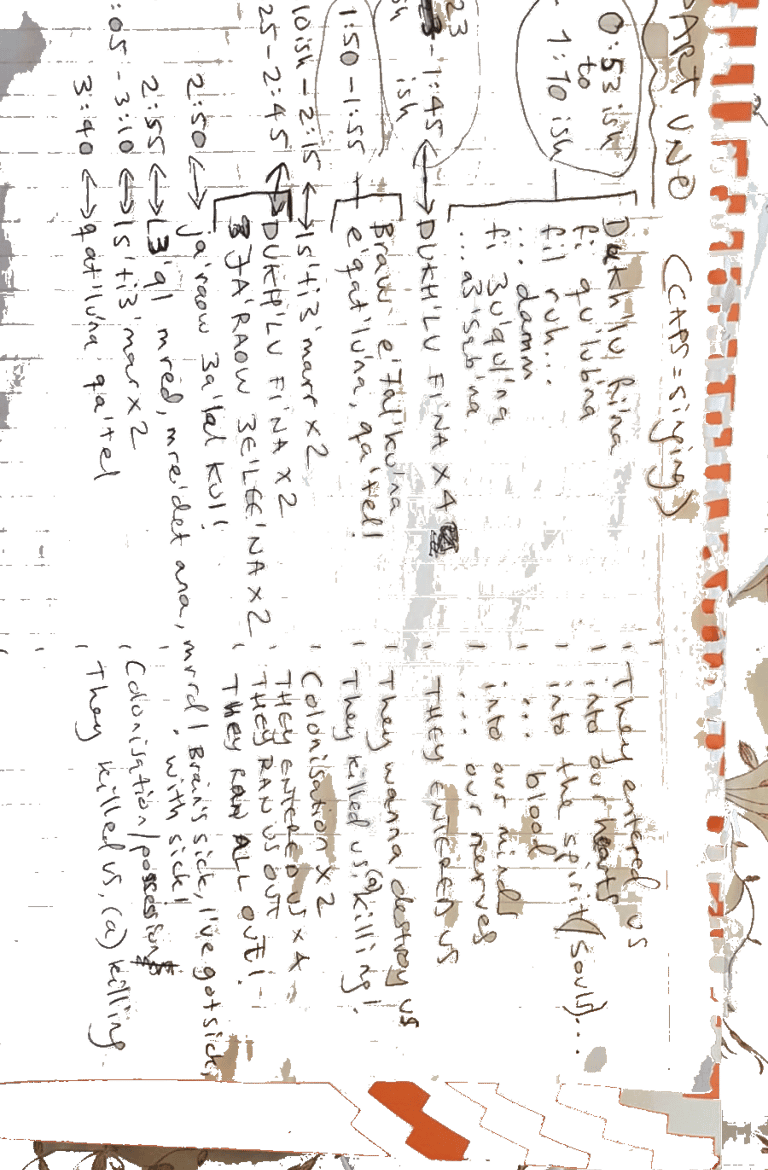 PART UNO (CAPS = singing)
0:53ish to 1:10ish
Dukh'lu fi'na They entered us
fi qu'lubna into our hearts
fil ruh... into the spirit (soul)...
... damm ... blood
fi 3u'qul'na into our minds
... a3'sab'na ... our nerves
- 1:45 ish ↔ DUKH'LU FI'NA x4 THEY ENTERED US
1:50 - 1:55 Braw' e'tal'ku'na They wanna destroy us
e'qat'lu'na, qa'tel! They killed us, (a) killing!
10ish - 2:15 ↔ Is'ti3'marr x2 Colonisation x2
25 - 2:45 ↔ DUKH'LU FI'NA x2 THEY ENTERED US x4
JA'RAOW 3E'LEE'NA x2 THEY RAN US OUT
2:50 ↔ ja'raow 3a'lal kull THEY RAN ALL OUT!
2:55 ↔ 3'ql mred, mre'det ana, mrrd! Brain's sick, I've got sick, with sick!
:05 - 3:10 ↔ Is'ti3'mar x2 Colonisation/possession
3:40 ↔ qat'lu'na qa'tel They killed us, (a) killing